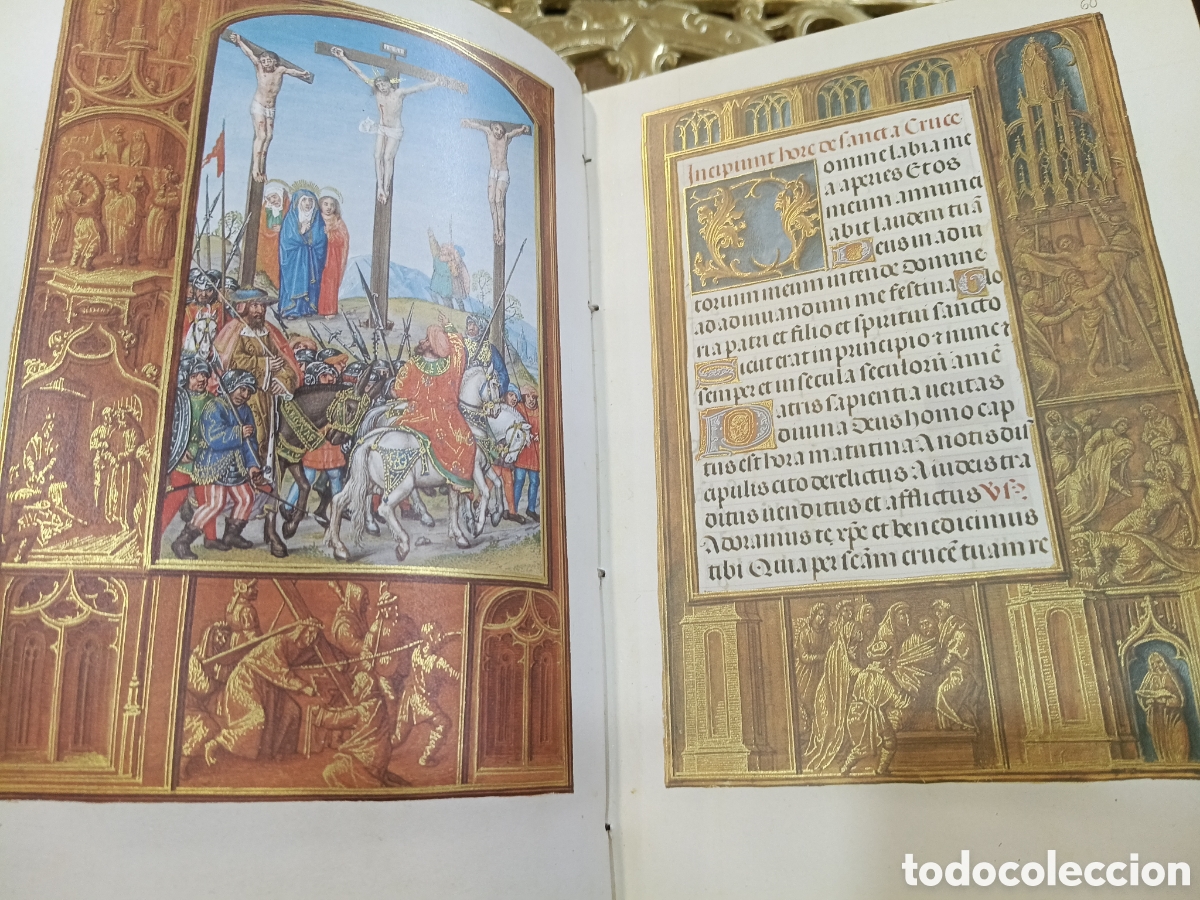 60
Incipiunt hore de sancta Cruce
Domine labia me
a aperies Et os
meum annunci
abit laudem tuā
Deus in adiu
torium meum intende Domine
ad adiuuandum me festina Glo
ria patri et filio et spiritui sancto
Sicut erat in principio et nunc et
semper et in secula seculorū amē
Patris sapientia ueritas
diuina Deus homo cap
tus est hora matutina A notis di
cipulis cito derelictus A iudeis tra
ditus uenditus et afflictus Vs̄
Adoramus te xp̄e et benedicimus
tibi Quia per scām crucē tuam re
todocoleccion